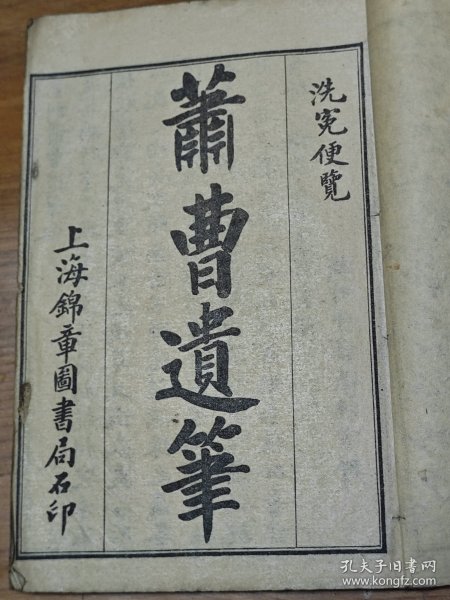 洗冤便覽
蕭曹遺筆
上海錦章圖書局石印
孔夫子旧书网
www.kongfz.com